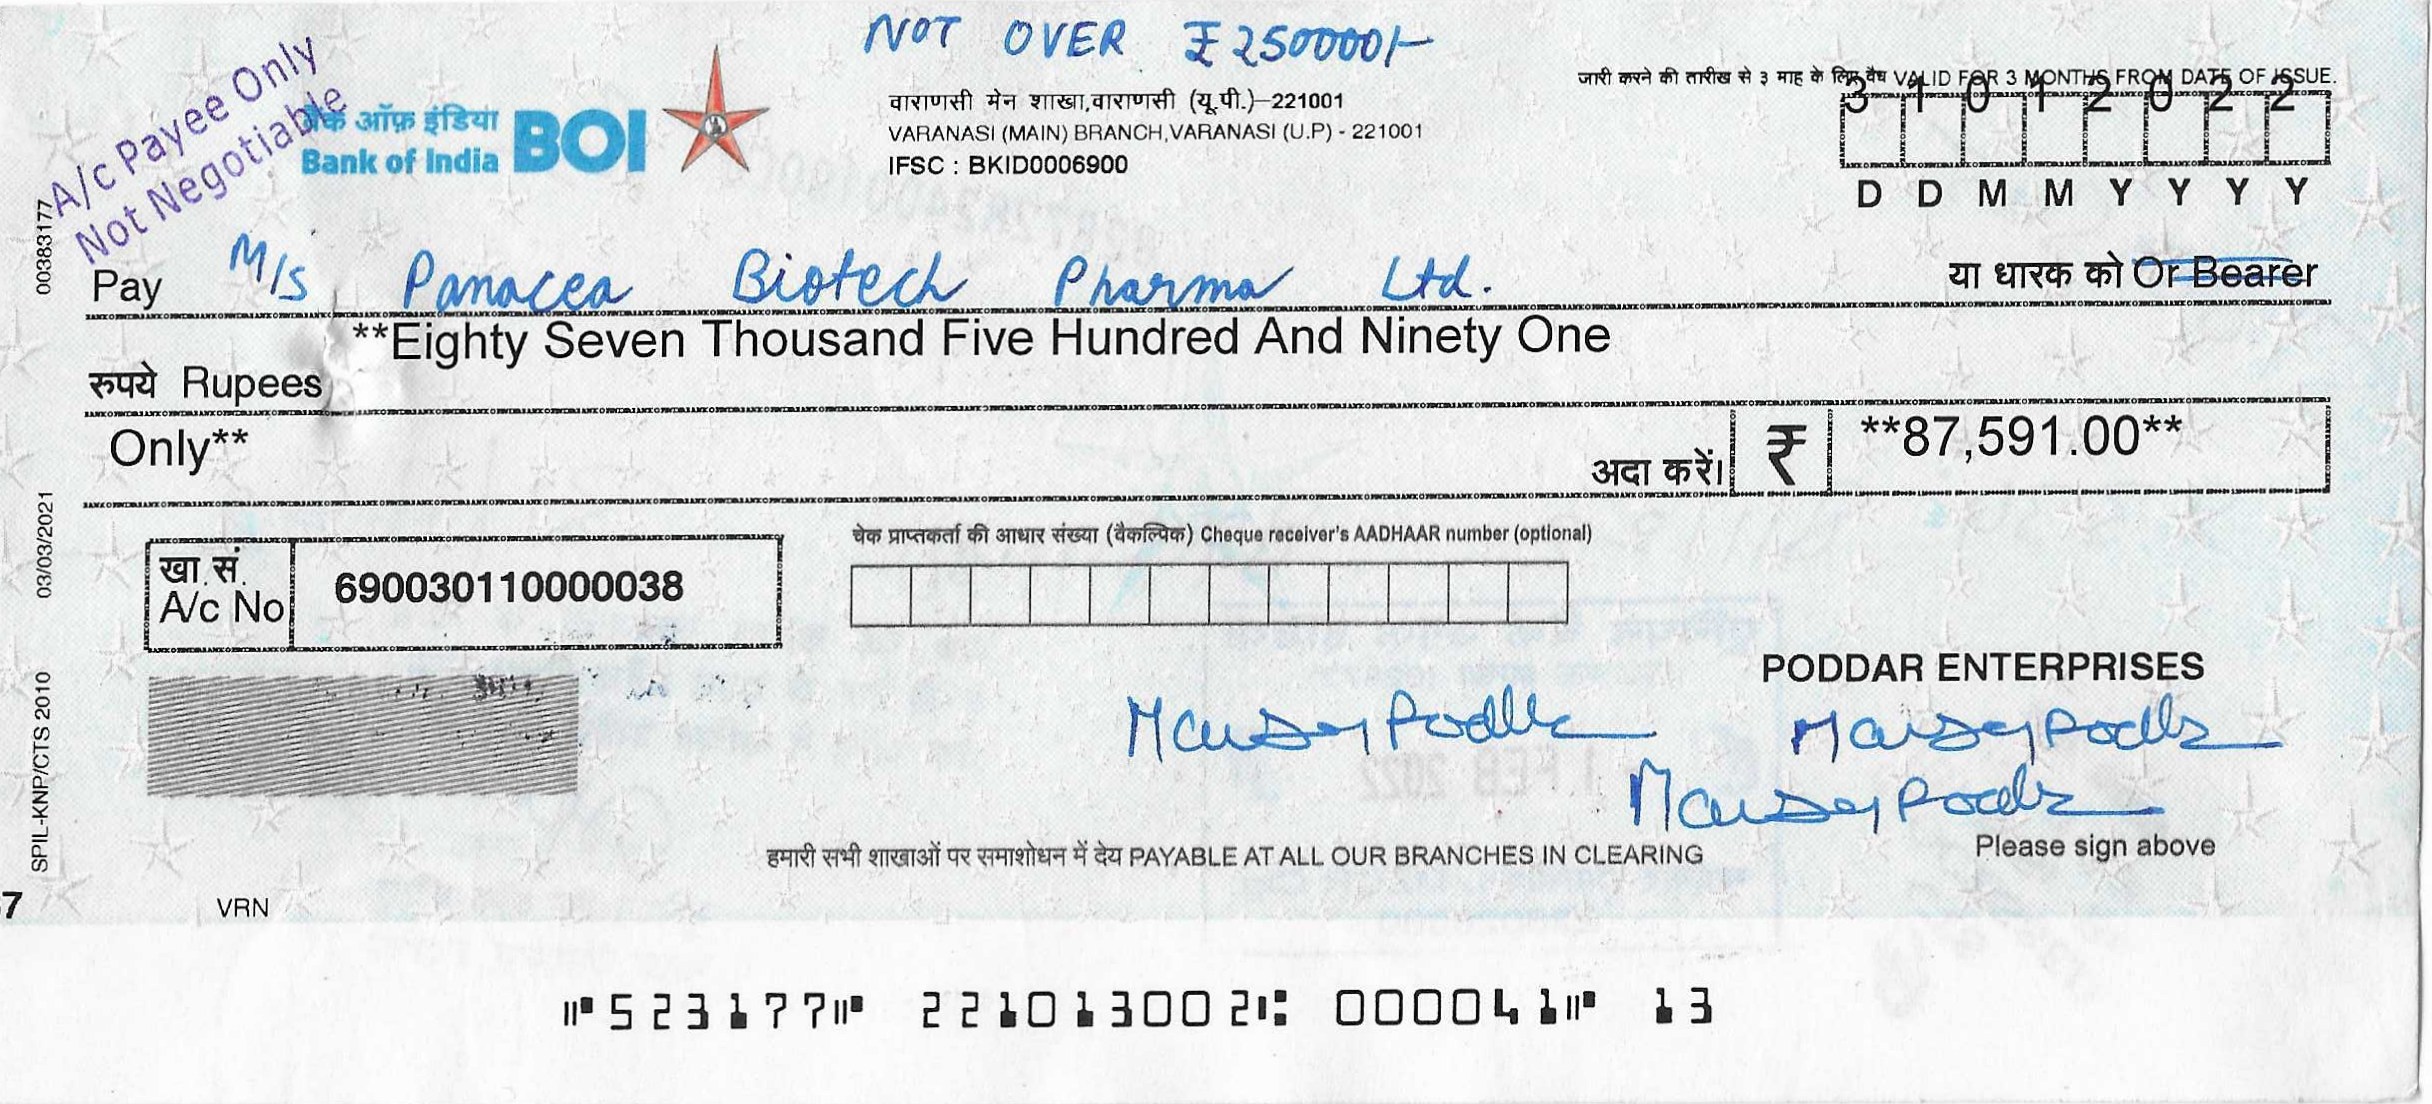 NOT OVER ₹ 250000/-
A/c Payee Only
Not Negotiable
बैंक ऑफ़ इंडिया
Bank of India BOI
वाराणसी मेन शाखा,वाराणसी (यू.पी.)–221001
VARANASI (MAIN) BRANCH,VARANASI (U.P) - 221001
IFSC : BKID0006900
जारी करने की तारीख से ३ माह के लिए वैध VALID FOR 3 MONTHS FROM DATE OF ISSUE.
3 1 0 1 2 0 2 2
D D M M Y Y Y Y
00383177
Pay M/s Panacea Biotech Pharma Ltd. या धारक को Or Bearer
**Eighty Seven Thousand Five Hundred And Ninety One
रुपये Rupees
Only** अदा करें। ₹ **87,591.00**
03/03/2021
खा.सं.
A/c No 690030110000038
चेक प्राप्तकर्ता की आधार संख्या (वैकल्पिक) Cheque receiver's AADHAAR number (optional)
PODDAR ENTERPRISES
SPIL-KNP/CTS 2010
Please sign above
हमारी सभी शाखाओं पर समाशोधन में देय PAYABLE AT ALL OUR BRANCHES IN CLEARING
7 VRN
⑈523177⑈ 221013002⑆ 000041⑈ 13